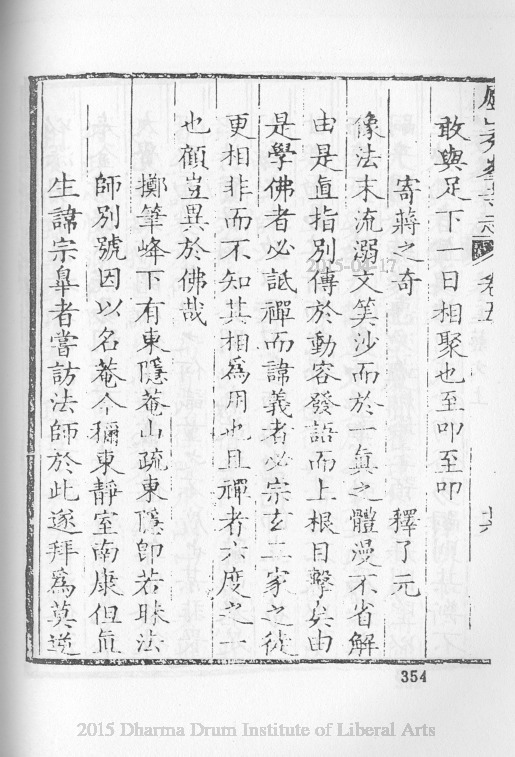 敢與足下一日相聚也至叩至叩
寄蔣之奇　釋了元
像法末流溺文筭沙而於一眞之體漫不省解
由是直指別傳於動容發語而上根目擊矣由
是學佛者必詆禪而諱義者必宗玄二家之徒
更相非而不知其相為用也且禪者六度之一
也顧豈異於佛哉
擲筆峰下有東隱菴山疏東隱卽若昧法
師別號因以名菴今稱東靜室南康但眞
生諱宗皐者嘗訪法師於此遂拜為莫逆
354
2015-04-17
2015 Dharma Drum Institute of Liberal Arts